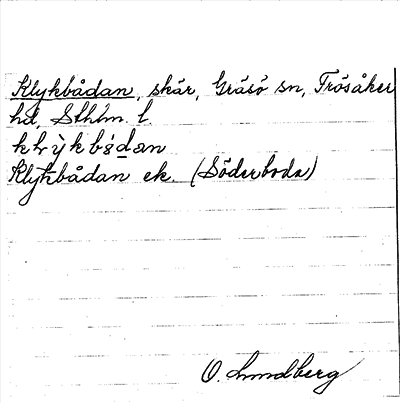 Klykbådan, skär, Gräsö sn, Frösåker
hd, Sthlm. l.
Klykbådan ek. (Söderboda)
O. Lundberg